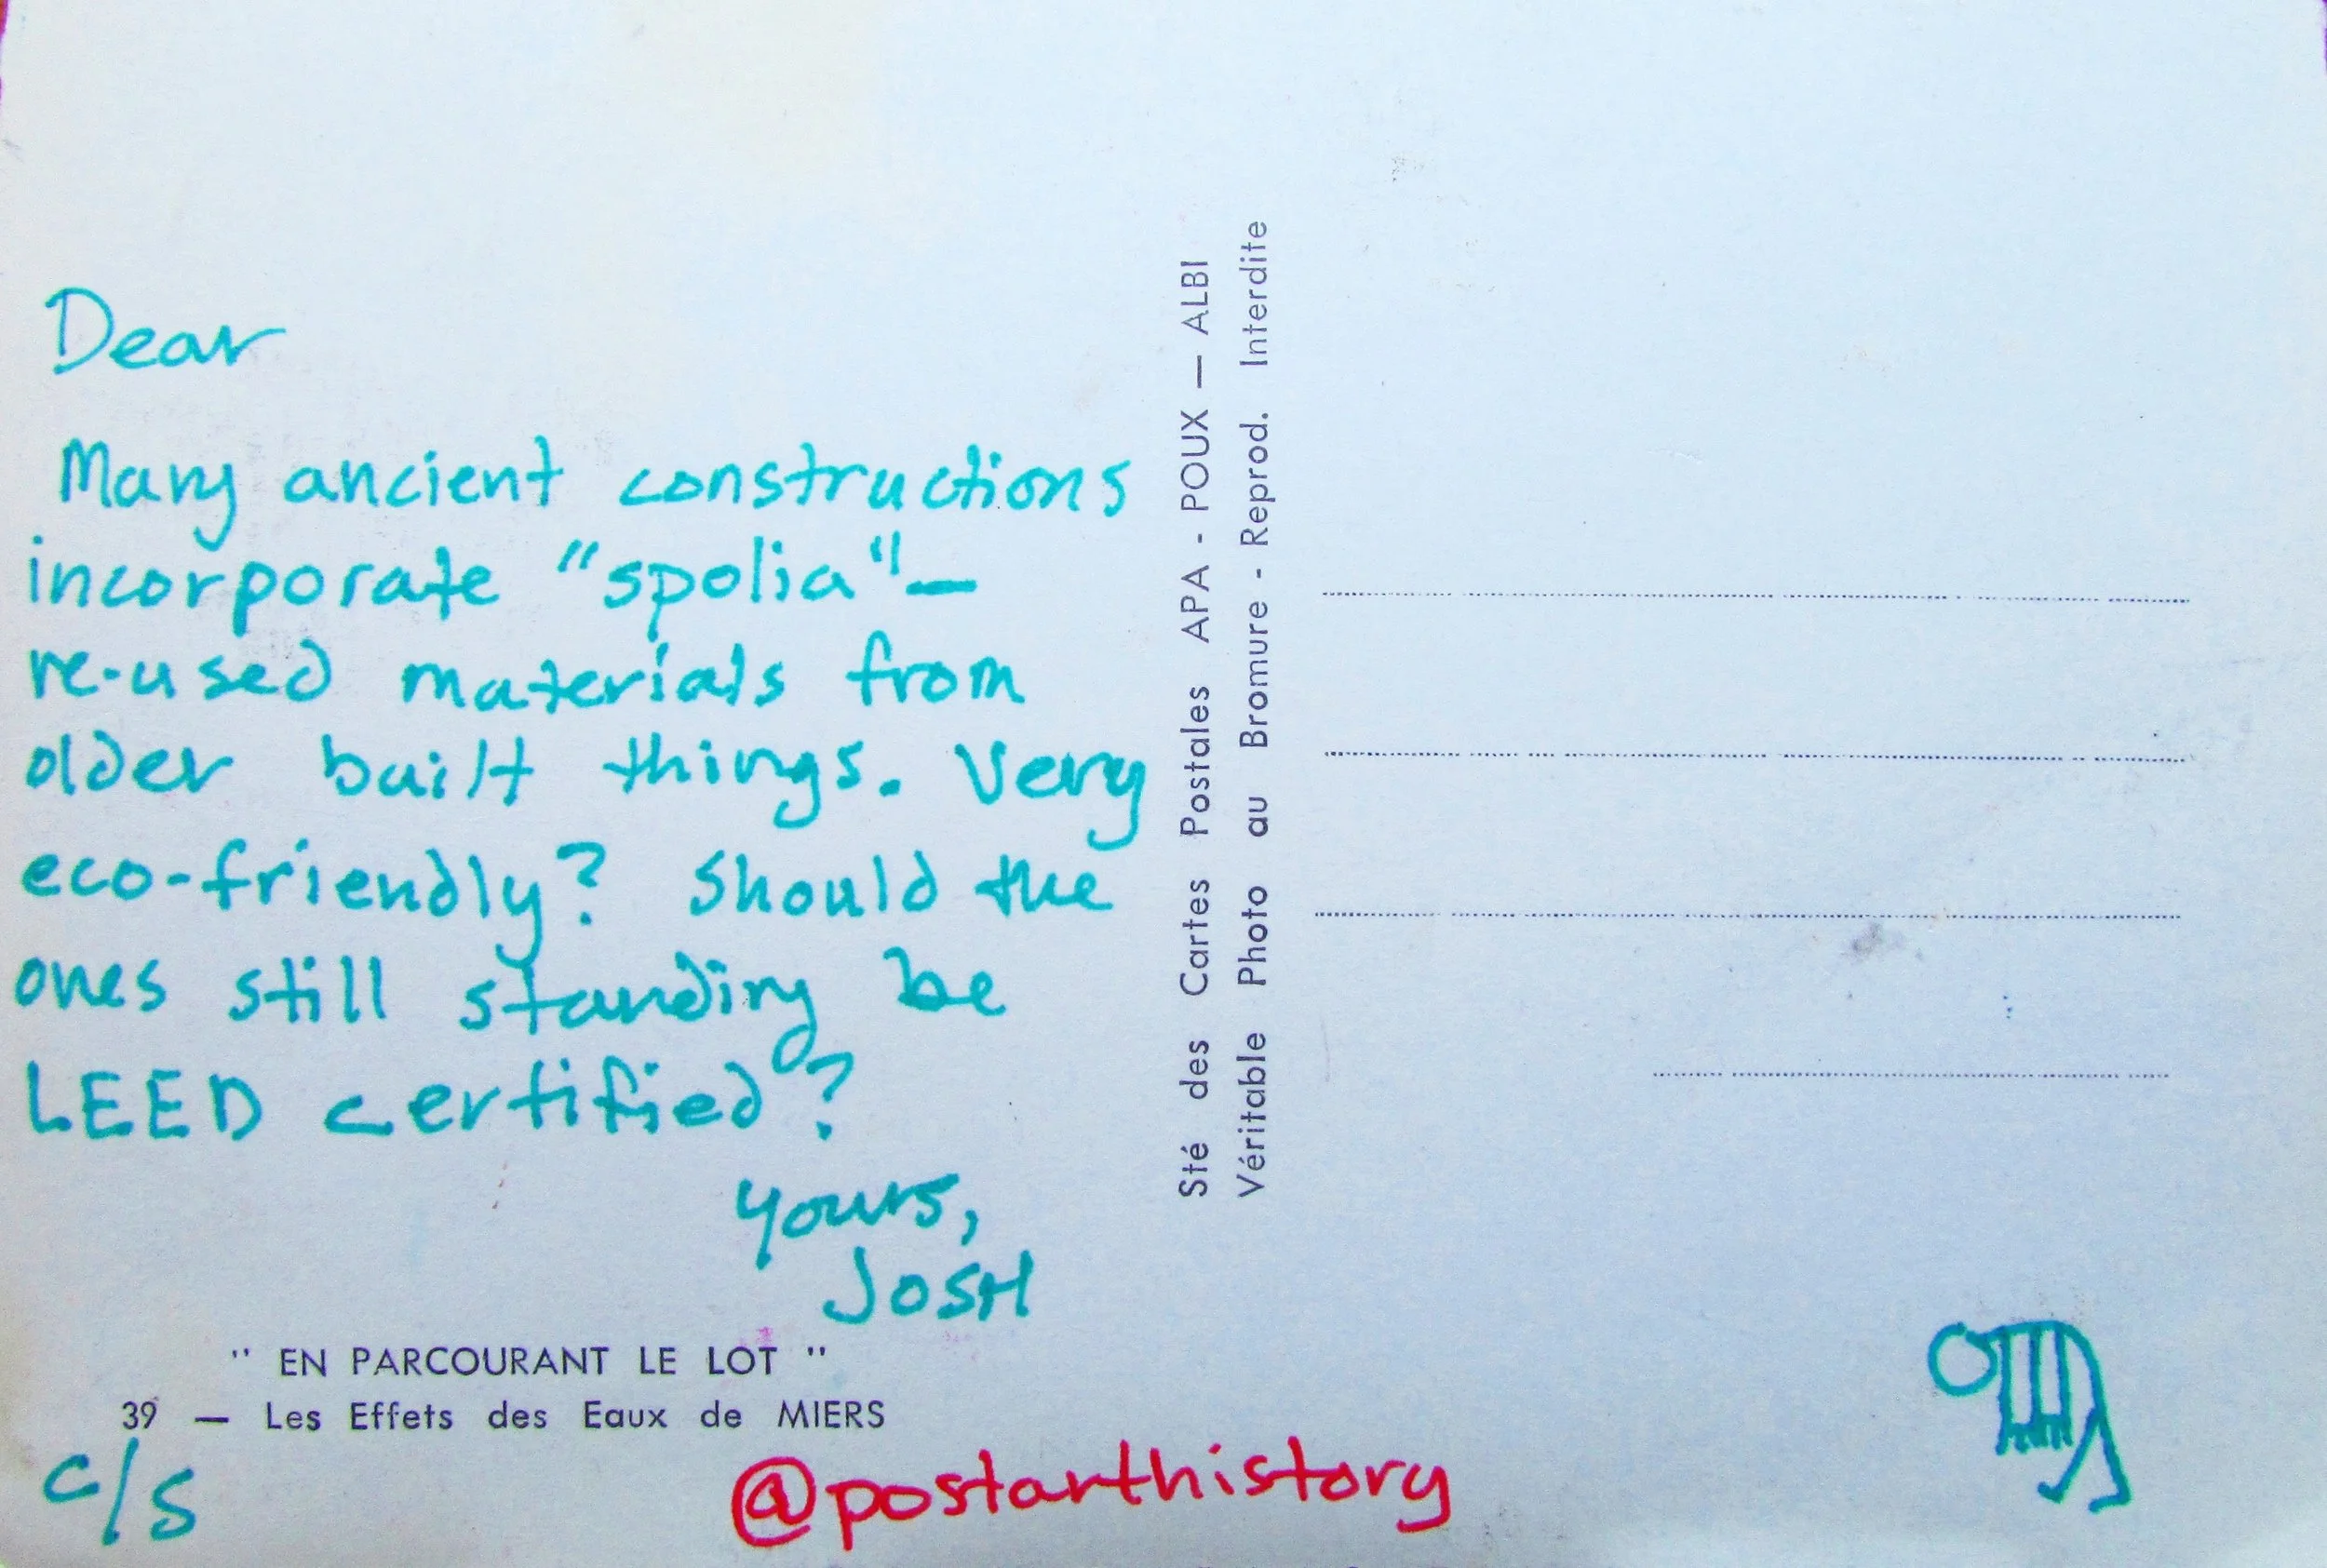 Dear
Many ancient constructions
incorporate "spolia"—
re-used materials from
older built things. Very
eco-friendly? Should the
ones still standing be
LEED certified?
Yours,
JOSH
" EN PARCOURANT LE LOT "
39 — Les Effets des Eaux de MIERS
c/s
@postarthistory
Sté des Cartes Postales APA - POUX — ALBI
Véritable Photo au Bromure - Reprod. Interdite